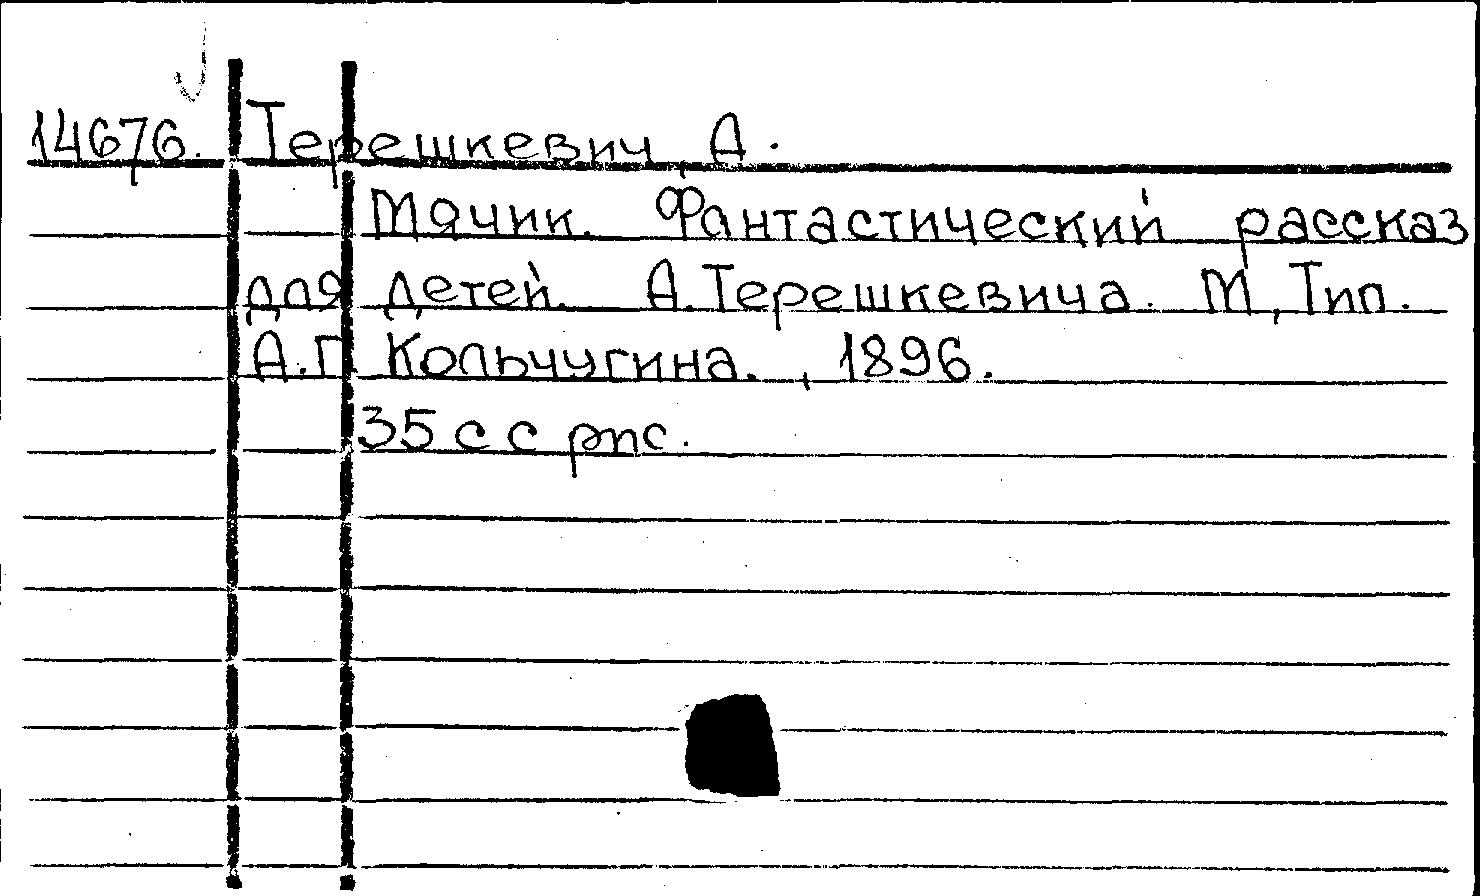 14676. Терешкевич, А.
Мячик. Фантастический рассказ
для детей. А. Терешкевича. М, Тип.
А.П. Кольчугина., 1896.
35 с с рис.